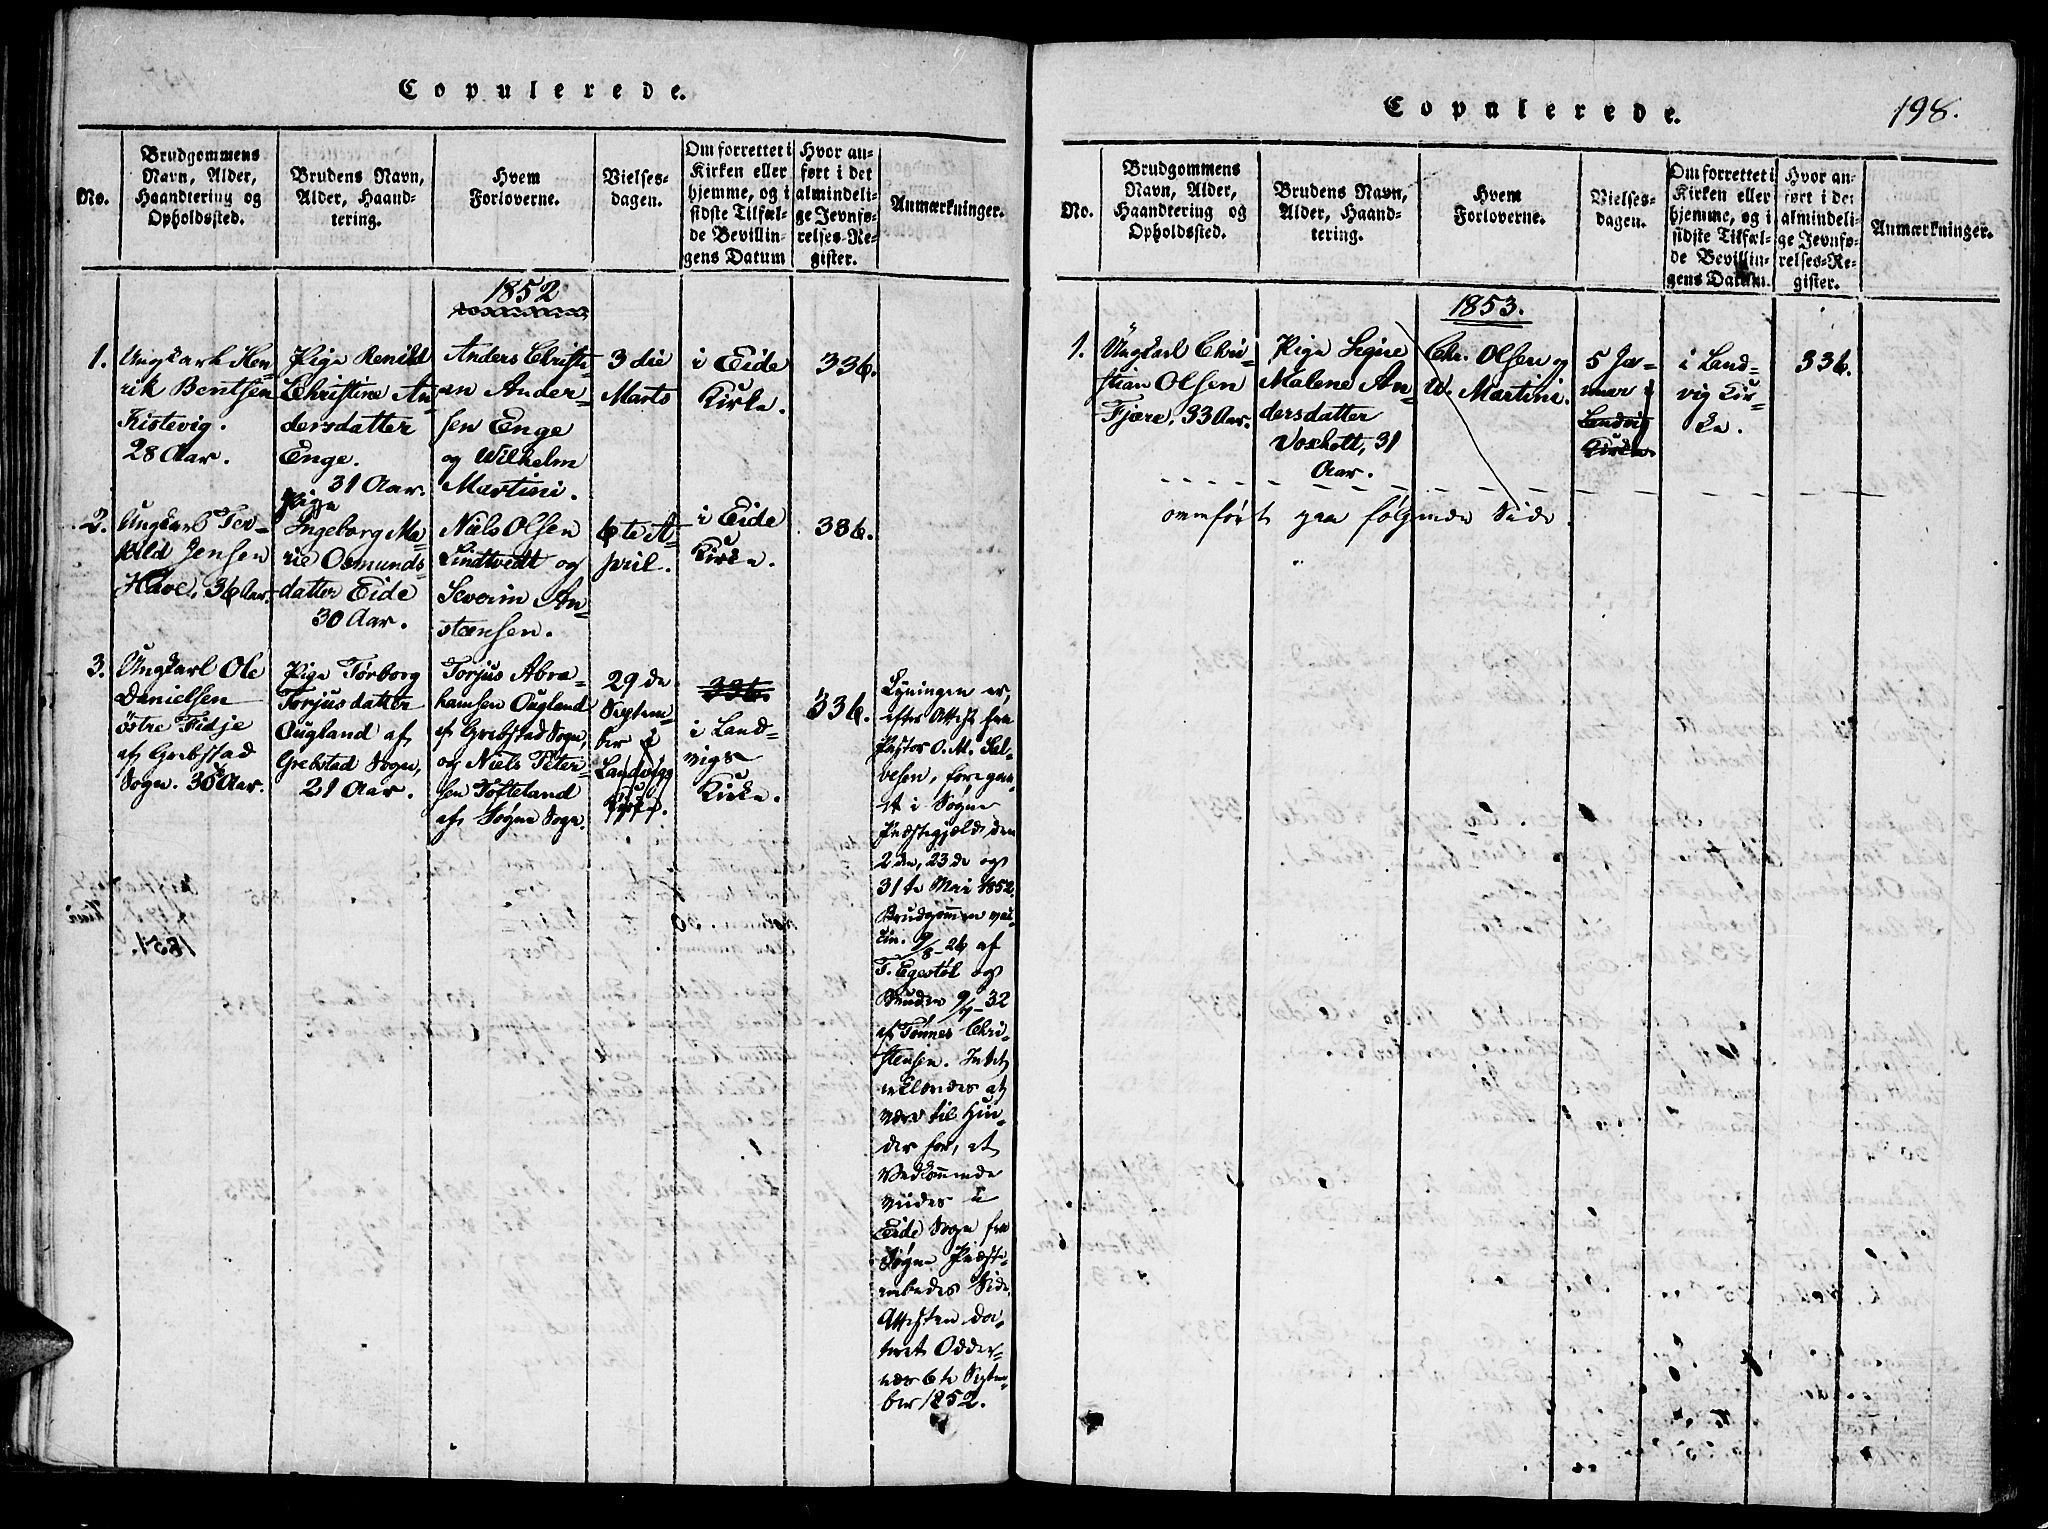 Copulerede.
No.
Brudgommens
Navn, Alder,
Haandtering og
Opholdssted.
Brudens Navn,
Alder, Haand-
tering.
Hvem
Forloverne.
Vielses-
dagen.
Om forrettet i
Kirken eller
hjemme, og i
sidste Tilfæl-
de Bevillin-
gens Datum
Hvor an-
ført i det
almindeli-
ge Jevnfø-
relses-Re-
gister.
Anmærkninger.
1852
1.
Ungkarl Hen-
rik Bentsen
Kistevig.
28 Aar.
Pige Renild
Christine An-
dersdatter
Enge.
31 Aar.
Anders Christi-
an Ander-
sen Enge
og Wilhelm
Martini.
3 die
Marts
i Eide
Kirke.
336.
2.
Ungkarl Ter-
kild Jensen
Have, 36 Aar.
Pige
Ingeborg Ma-
rie Osmunds-
datter Eide
30 Aar.
Niels Olsen
Lindtvedt og
Severin An-
stensen.
6te A-
pril.
i Eide
Kirke.
336.
3.
Ungkarl Ole
Danielsen
östre Fidje
af Grebstad
Sogn. 30 Aar.
Pige Törborg
Torjusdatter
Ougland af
Grebstad Sogn,
21 Aar.
Torjus Abra-
hamsen Ougland
af Grebstad Sogn,
og Niels Peter-
sen Tofteland
af Søgne Sogn.
29 de
Septem-
ber i
Landvigs
Kirke.
336.
i Land-
vigs
Kirke.
336.
Lysningen er,
efter Attest fra
Pastor O. M. Sal-
vesen, foregaa-
et i Søgne
Præstegjeld den
2den, 23de og
31te Mai 1852.
Brudgommen vac-
cin. 9/8 26 af
T. Egestöl og
Bruden 9/7 32
af Tønnes Chri-
stensen. Intet
vides at
være til Hin-
der for, at
Vedkommende
viides i
Eide Sogn fra
Søgne Præste-
embedes Side.
Attesten da-
teret Odder-
næs 6te Septem-
ber 1852.
Copulerede.
198.
No.
Brudgommens
Navn, Alder,
Haandtering og
Opholdssted.
Brudens Navn,
Alder, Haand-
tering.
Hvem
Forloverne.
Vielses-
dagen.
Om forrettet i
Kirken eller
hjemme, og i
sidste Tilfæl-
de Bevillin-
gens Datum.
Hvor an-
ført i det
almindeli-
ge Jevnfø-
relses-Re-
gister.
Anmærkninger.
1853.
1.
Ungkarl Chri-
stian Olsen
Fjære, 33 Aar.
Pige Signe
Malene An-
dersdatter
Voxholt, 31
Aar.
Chr. Olsen og
W. Martini.
5 Ja-
nuar i
Landvig
Kirke
i Land-
vig Kir-
ke.
336.
overført paa følgende Side.